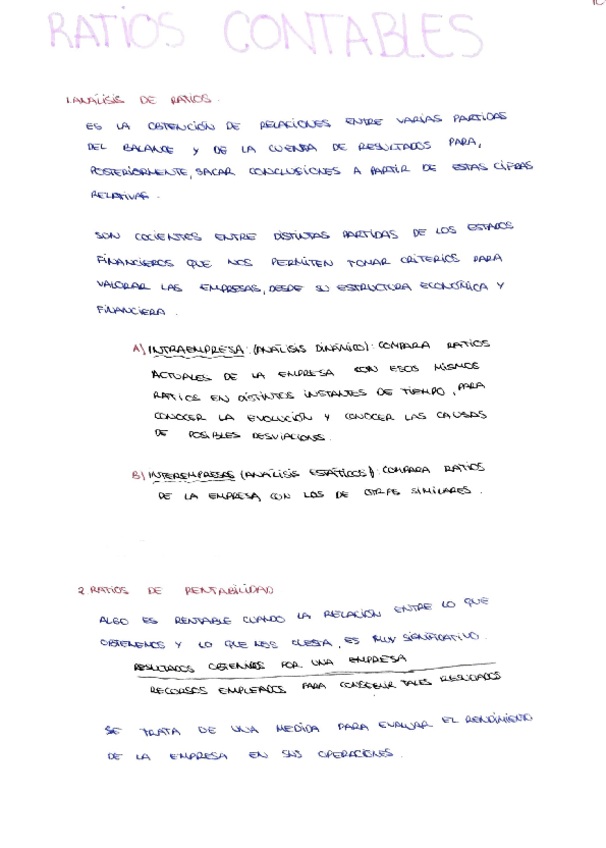 RATIOS CONTABLES
1. ANÁLISIS DE RATIOS.
ES LA OBTENCIÓN DE RELACIONES ENTRE VARIAS PARTIDAS
DEL BALANCE Y DE LA CUENTA DE RESULTADOS PARA,
POSTERIORMENTE, SACAR CONCLUSIONES A PARTIR DE ESTAS CIFRAS
RELATIVAS.
SON COCIENTES ENTRE DISTINTAS PARTIDAS DE LOS ESTADOS
FINANCIEROS QUE NOS PERMITEN TOMAR CRITERIOS PARA
VALORAR LAS EMPRESAS, DESDE SU ESTRUCTURA ECONÓMICA Y
FINANCIERA.
A) INTRAEMPRESA: (ANÁLISIS DINÁMICO): COMPARA RATIOS
ACTUALES DE LA EMPRESA CON ESOS MISMOS
RATIOS EN DISTINTOS INSTANTES DE TIEMPO, PARA
CONOCER LA EVOLUCIÓN Y CONOCER LAS CAUSAS
DE POSIBLES DESVIACIONS.
B) INTEREMPRESAS (ANÁLISIS ESTÁTICOS): COMPARA RATIOS
DE LA EMPRESA CON LOS DE OTRAS SIMILARES.
2. RATIOS DE RENTABILIDAD
ALGO ES RENTABLE CUANDO LA RELACIÓN ENTRE LO QUE
OBTENEMOS Y LO QUE NOS CUESTA, ES MUY SIGNIFICATIVO.
RESULTADOS OBTENIDOS POR UNA EMPRESA
RECURSOS EMPLEADOS PARA CONSEGUIR TALES RESULTADOS
SE TRATA DE UNA MEDIDA PARA EVALUAR EL RENDIMIENTO
DE LA EMPRESA EN SUS OPERACIONES.